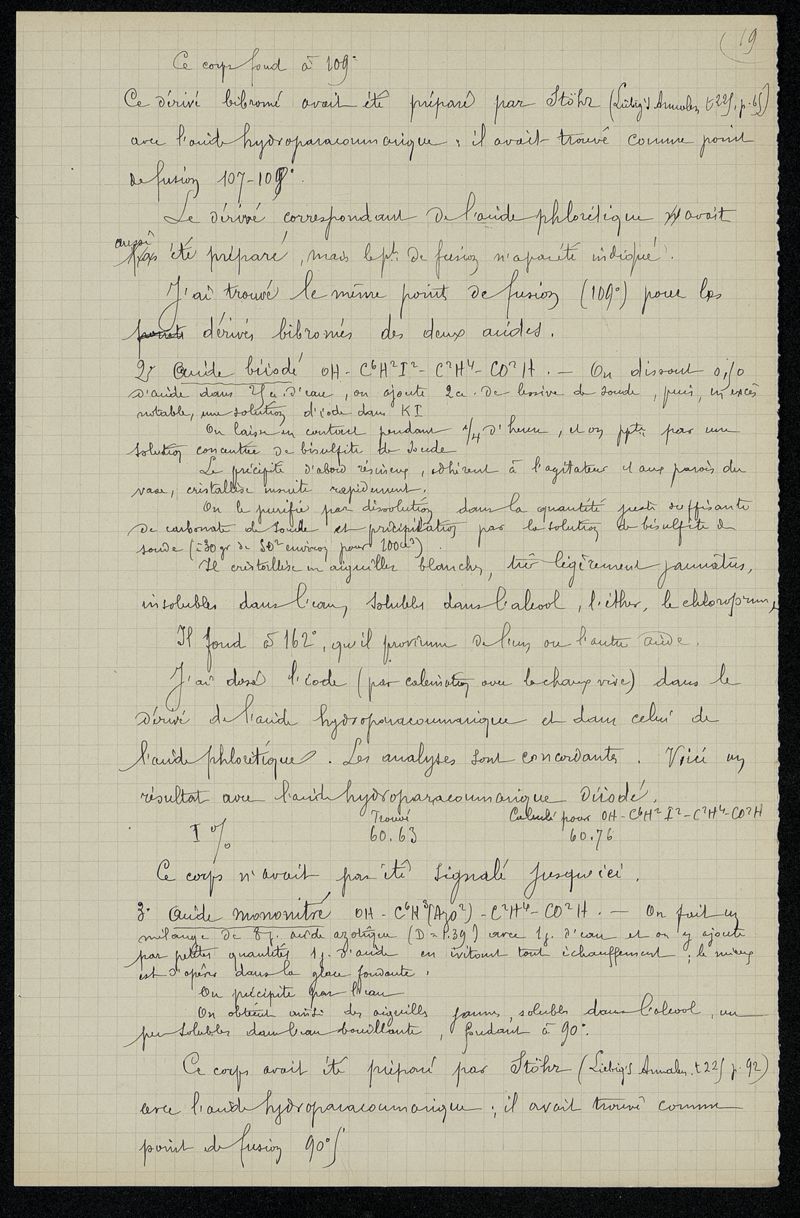 19
Ce corps fond à 109°
Ce dérivé bibromé avait été préparé par Stöhr (Liebig's Annalen, t. 225, p.
avec l'acide hydroparacoumarique ; il avait trouvé comme point
de fusion 107-108°.
Le dérivé correspondant de l'acide phlorétique avait
aussi été préparé, mais le pt. de fusion n'a pas été indiqué.
J'ai trouvé le même point de fusion (109°) pour les
points dérivés bibromés des deux acides.
2° Acide biiodé OH - C⁶H²I² - C²H⁴ - CO²H. — On dissout
d'acide dans d'eau, on ajoute 2cc. de lessive de soude, puis, en excès
notable, une solution d'iode dans KI
On laisse en contact pendant 1/4 d'heure, et on ppte par une
solution concentrée de bisulfite de soude
Le précipité d'abord résineux, adhérent à l'agitateur et aux parois du
vase, cristallise ensuite rapidement.
On le purifie par dissolution dans la quantité juste suffisante
de carbonate de soude et précipitation par la solution de bisulfite de
soude (à 30 gr de SO² environ pour 100cc)
Il cristallise en aiguilles blanches, très légèrement jaunâtres,
insolubles dans l'eau, solubles dans l'alcool, l'éther, le chloroforme,
Il fond à 162°, qu'il provienne de l'un ou l'autre acide.
J'ai dosé l'iode (par calcination avec la chaux vive) dans le
dérivé de l'acide hydroparacoumarique et dans celui de
l'acide phlorétique. Les analyses sont concordantes. Voici un
résultat avec l'acide hydroparacoumarique diiodé.
Trouvé Calculé pour OH - C⁶H²I² - C²H⁴ - CO²H
I % 60.63 60.76
Ce corps n'avait pas été signalé jusqu'ici.
3° Acide mononitré OH - C⁶H³(AzO²) - C²H⁴ - CO²H. — On fait un
mélange de 8g. acide azotique (D = 1.39) avec 1g. d'eau et on y ajoute
par petites quantités 1g. d'acide en évitant tout échauffement ; le mieux
est d'opérer dans la glace fondante.
On précipite par l'eau
On obtient ainsi des aiguilles jaunes, solubles dans l'alcool, un
peu solubles dans l'eau bouillante, fondant à 90°.
Ce corps avait été préparé par Stöhr (Liebig's Annalen. t. 225 p. 92)
avec l'acide hydroparacoumarique ; il avait trouvé comme
point de fusion 90°5